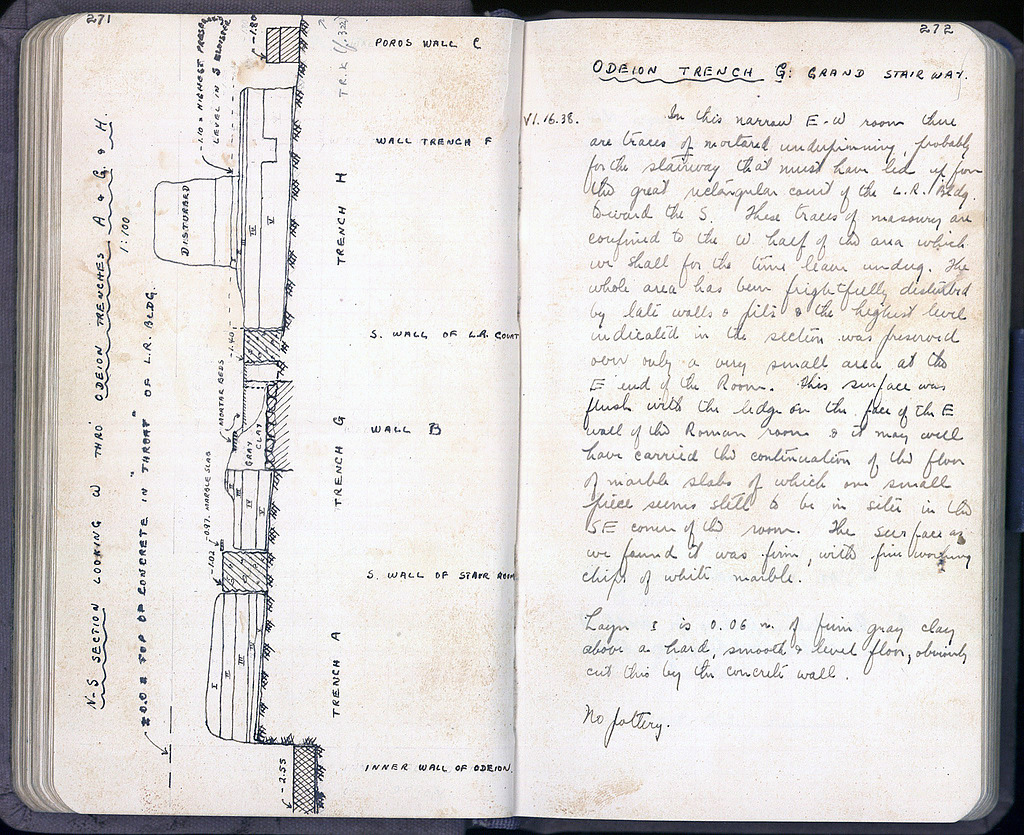 271
N-S SECTION LOOKING W THRO' ODEION TRENCHES A & G. & H.
1:100
±0.0 = TOP OF CONCRETE IN "THROAT" OF L.R. BLDG.
-1.10 = HIGHEST PRESERVED
LEVEL IN S
-1.80
TR. K
POROS WALL C
WALL TRENCH F
DISTURBED
III
IV
V
TRENCH H
-1.40
S. WALL OF L.R. COURT
MORTAR BEDS
GRAY
CLAY
WALL B
TRENCH G
-0.97. MARBLE SLAB
III
IV
V
-1.02
S. WALL OF STAIR ROOM
TRENCH A
I
II
III
IV
V
-2.55
INNER WALL OF ODEION.
272
ODEION TRENCH G: GRAND STAIRWAY.
VI.16.38.
In this narrow E-W room there
are traces of mortared underpinning, probably
for the stairway that must have led up from
the great rectangular court of the L.R. Bldg.
toward the S. These traces of masonry are
confined to the W. half of the area which
we shall for the time leave undug. The
whole area has been frightfully disturbed
by late walls & pits & the highest level
indicated in the section was preserved
over only a very small area at the
E end of the Room. This surface was
flush with the ledge on the face of the E
wall of the Roman room & it may well
have carried the continuation of the floor
of marble slabs of which one small
piece seems still to be in situ in the
SE corner of the room. The surface as
we found it was firm, with fine working
chips of white marble.
Layer 3 is 0.06 m. of firm gray clay
above a hard, smooth & level floor, obviously
cut this by the concrete wall.
No pottery.